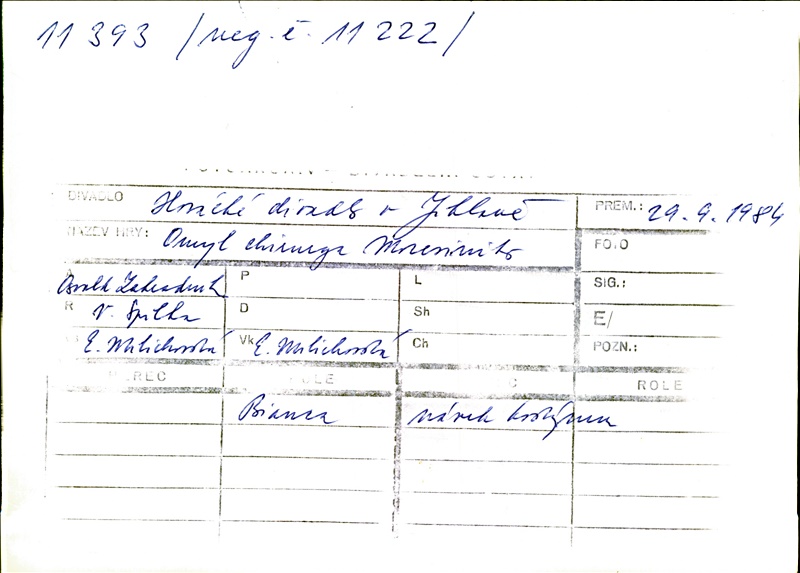 11 393 /neg. č. 11 222/
DIVADLO Horácké divadlo v Jihlavě PREM.: 29. 9. 1984
NÁZEV HRY: Omyl chirurga Moresiniho FOTO
Osvald Zahradník P L SIG.:
R V. Spilka D Sh E/
E. Milichovská Vk E. Milichovská Ch POZN.:
HEREC ROLE ROLE
Bianca návrh kostýmu